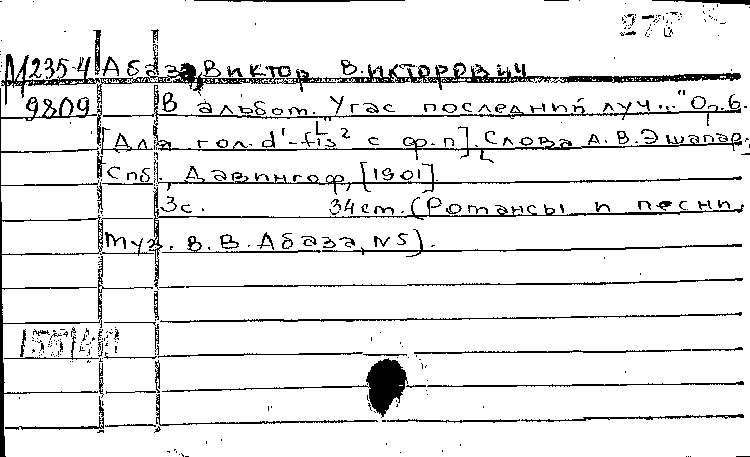 278
М235-4 Абаза, Виктор Викторович
9809 В альбом. "Угас последний луч..." Op. 6.
[Для гол. d¹-fis² с ф.п]. Слова А. В. Эшапар.
Спб, Давингоф, [1901].
3с. 34см. (Романсы и песни,
муз. В. В. Абаза, N5).